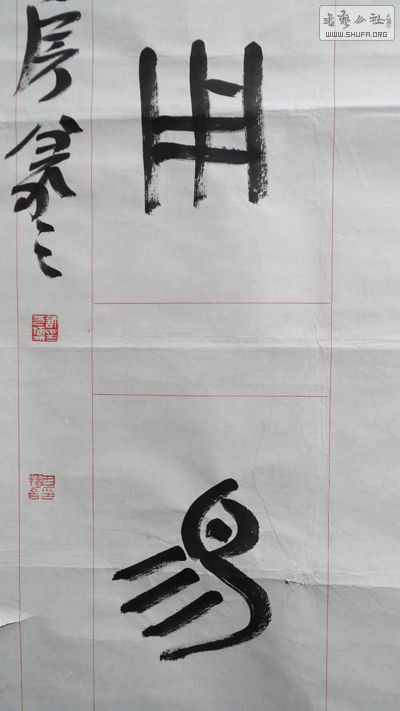 書藝公社
WWW.SHUFA.ORG
用
易
房篆之